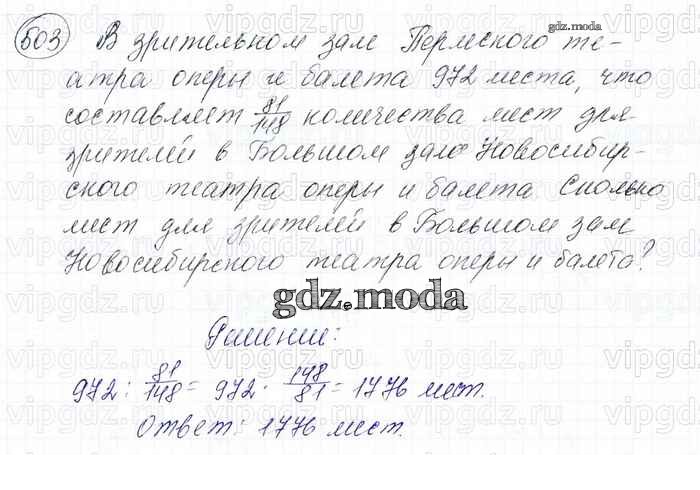 503 В зрительном зале Пермского те-
атра оперы и балета 972 места, что
составляет 81/148 количества мест для
зрителей в Большом зале Новосибир-
ского театра оперы и балета. Сколько
мест для зрителей в Большом зале
Новосибирского театра оперы и балета?
gdz.moda
gdz.moda
Решение:
972 : 81/148 = 972 · 148/81 = 1776 мест.
Ответ: 1776 мест.
vipgdz.ru